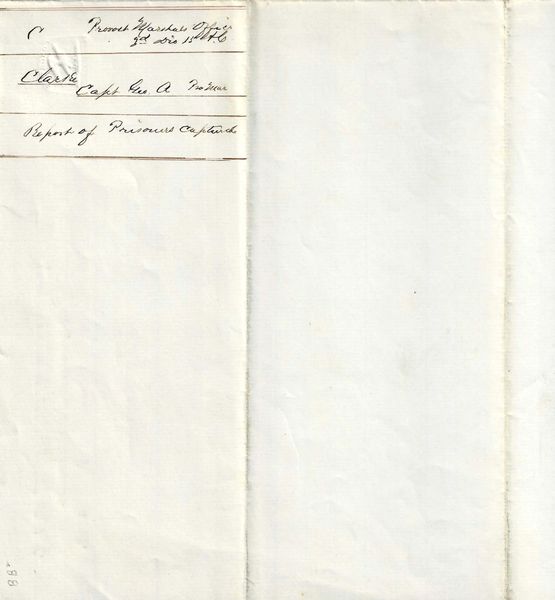 C
Provost Marshals Office
3d Div 15th A C
Clarke
Capt Geo. A Pro Mar
Report of Prisoners Captured